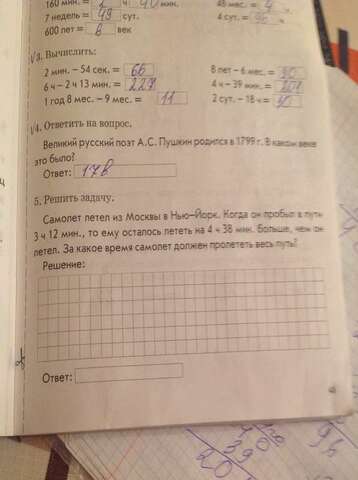 160 мин. = 2 ч 40 мин. 48 мес. = 4
7 недель = 49 сут. 4 сут. = 96 ч
600 лет = 6 век
3. Вычислить:
2 мин. – 54 сек. = 66 8 лет – 6 мес. = 90
6 ч – 2 ч 13 мин. = 227 4 ч – 39 мин. = 201
1 год 8 мес. – 9 мес. = 11 2 сут. – 18 ч =
4. Ответить на вопрос.
Великий русский поэт А.С. Пушкин родился в 1799 г. В каком веке
это было?
Ответ: 17 в
5. Решить задачу.
Самолет летел из Москвы в Нью–Йорк. Когда он пробыл в пути
3 ч 12 мин., то ему осталось лететь на 4 ч 38 мин. больше, чем он
летел. За какое время самолет должен пролететь весь путь?
Решение:
Ответ: